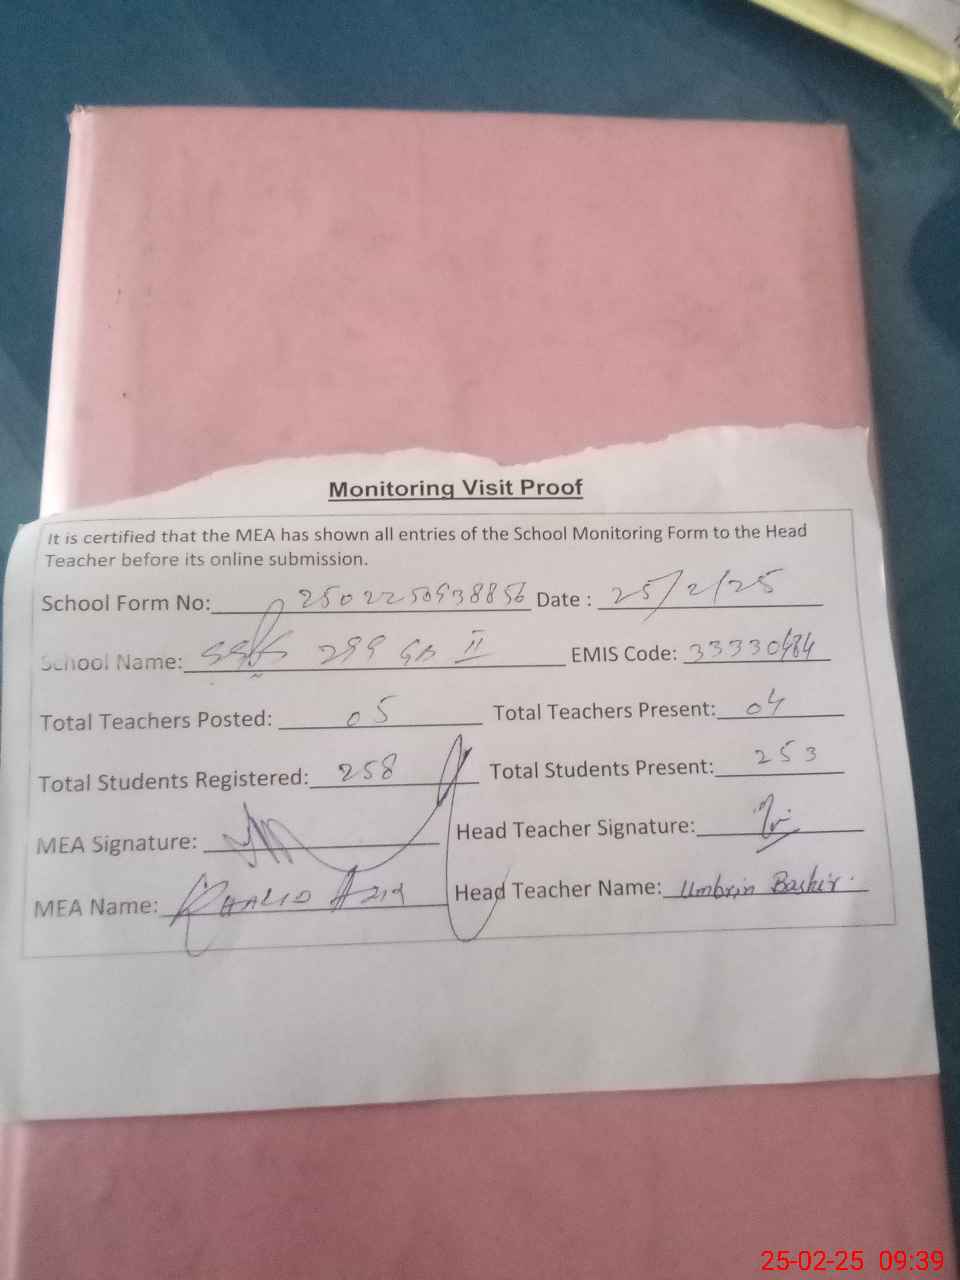 Monitoring Visit Proof
It is certified that the MEA has shown all entries of the School Monitoring Form to the Head
Teacher before its online submission.
School Form No: 2502250938856 Date : 25/2/25
School Name: 299 GB II EMIS Code: 33330484
Total Teachers Posted: 05 Total Teachers Present: 04
Total Students Registered: 258 Total Students Present: 253
MEA Signature: Head Teacher Signature:
MEA Name: KHALID AZIZ Head Teacher Name: Umbrin Bashir.
25-02-25 09:39